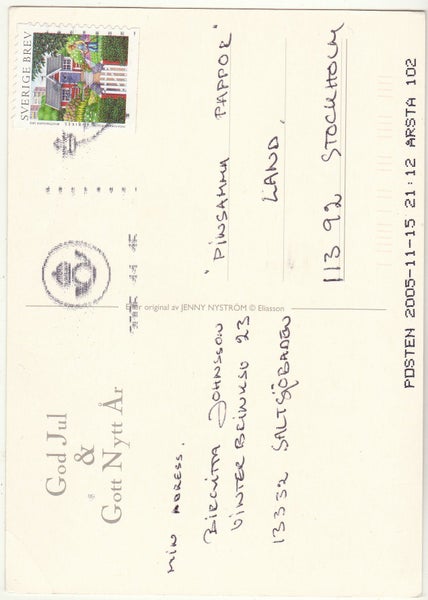 God Jul
&
Gott Nytt År
MIN ADRESS.
BIRGITTA JOHNSSON
23
13332 SALTSJÖBADEN
original av JENNY NYSTRÖM © Eliasson
SVERIGE BREV
"PINSAMMA PAPPOR"
LAND.
113 92 STOCKHOLM
POSTEN 2005-11-15 21:12 ÅRSTA 102